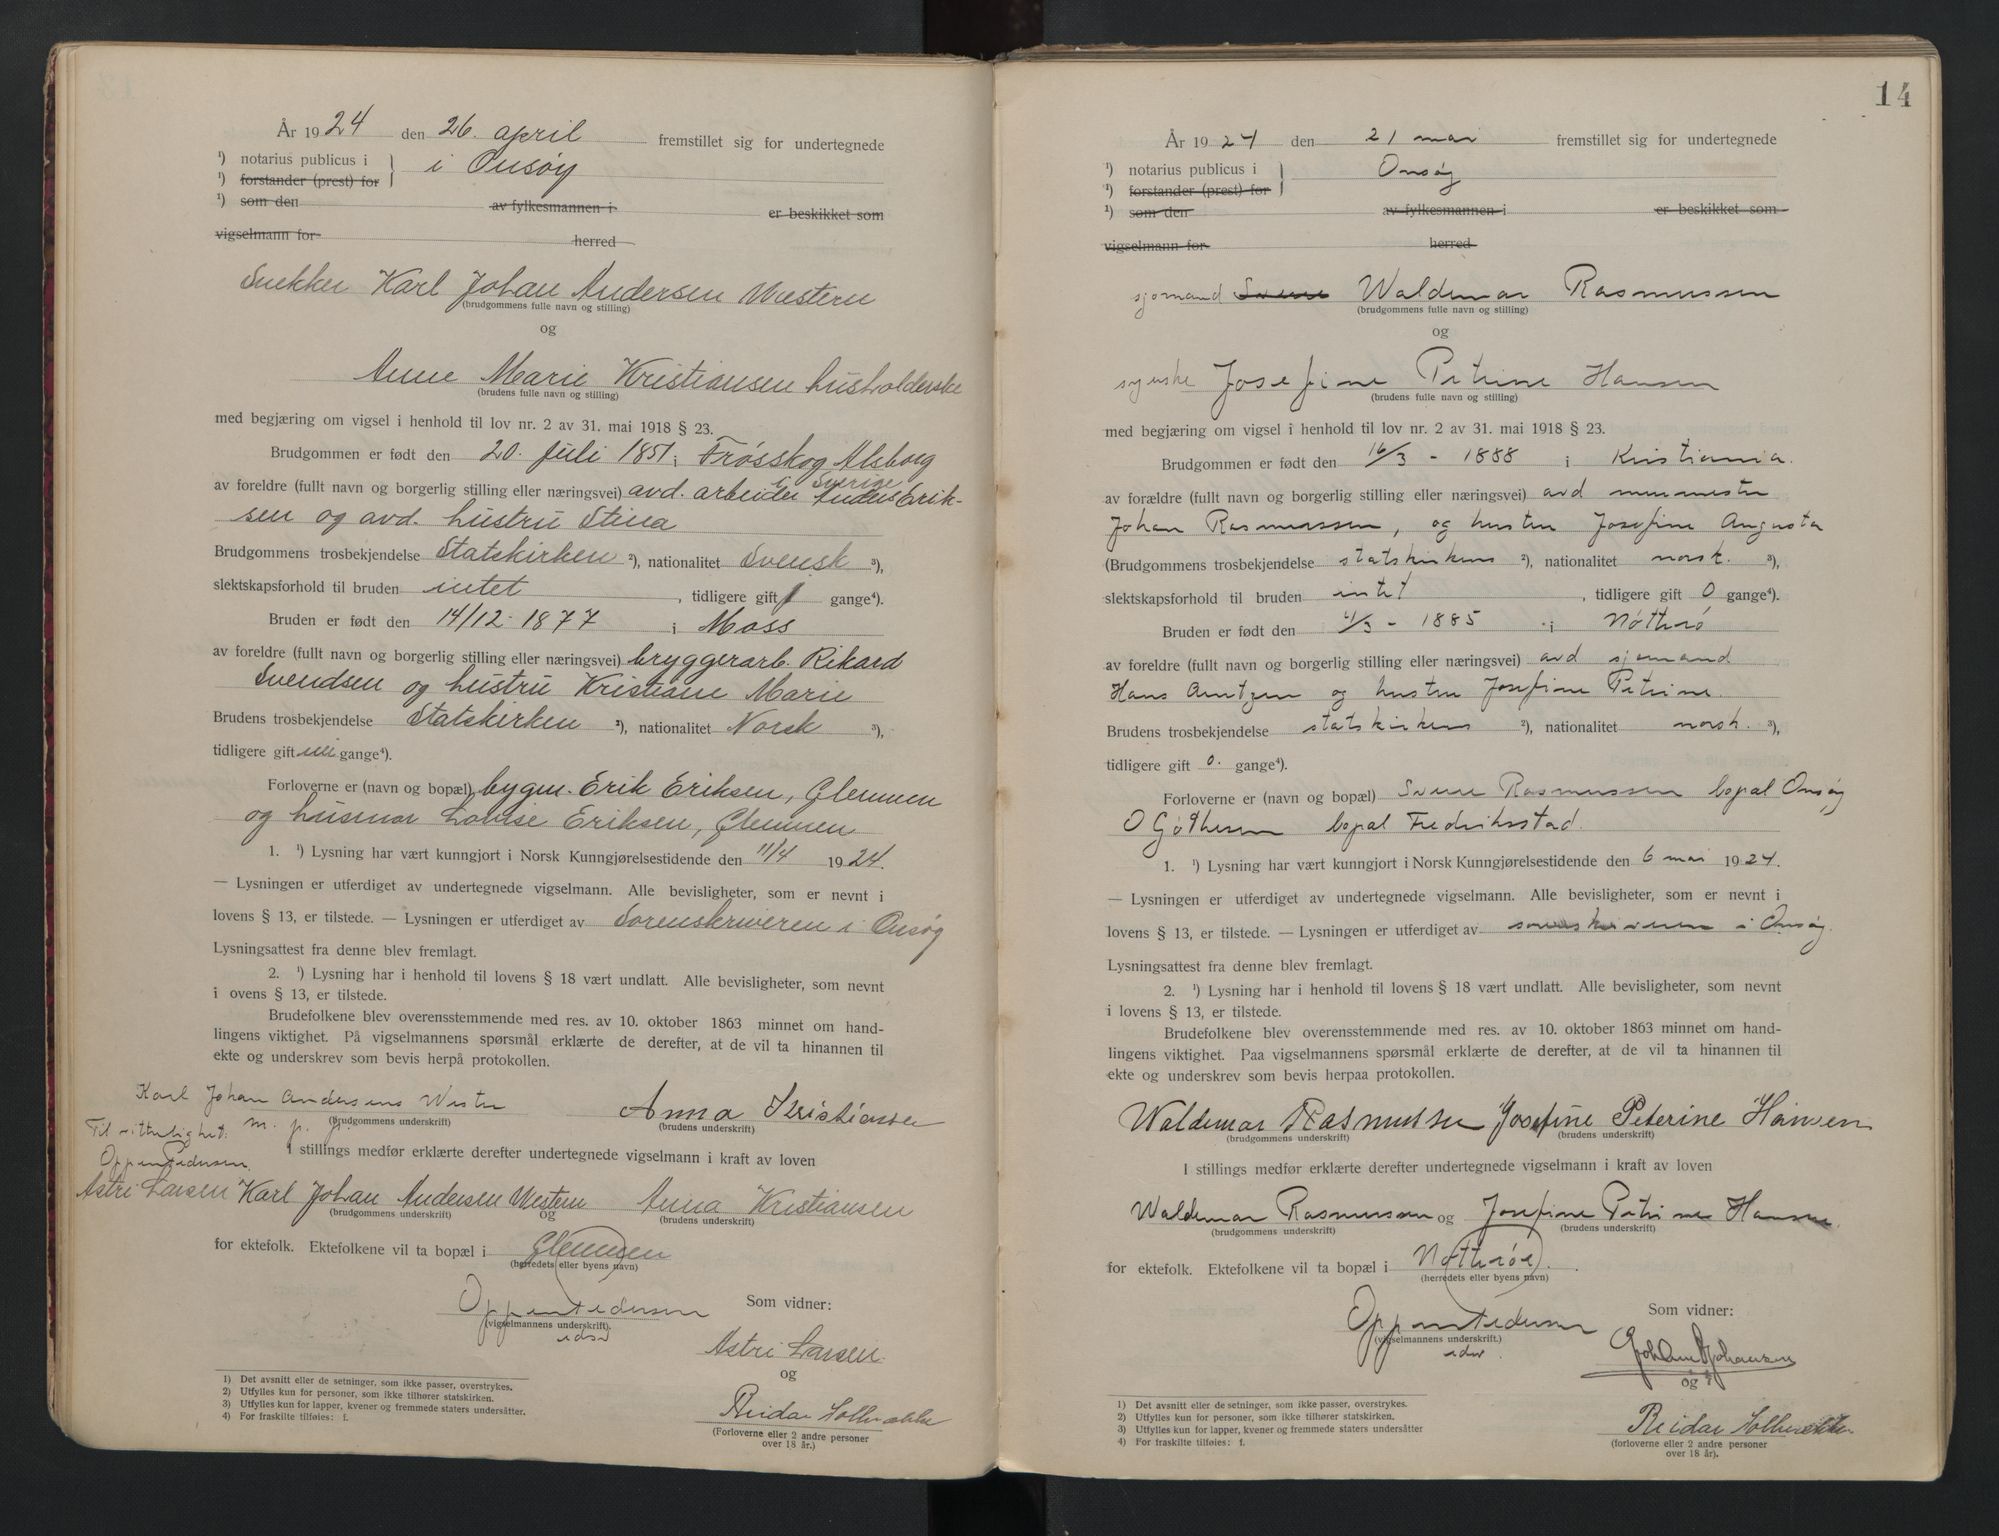 År 1924 den 26. april fremstillet sig for undertegnede
¹) notarius publicus i } i Onsøy
¹) forstander (prest) for
¹) som den av fylkesmannen i er beskikket som
vigselmann for herred
Snekker Karl Johan Andersen Western
(brudgommens fulle navn og stilling)
og
Anne Marie Kristiansen husholderske
(brudens fulle navn og stilling)
med begjæring om vigsel i henhold til lov nr. 2 av 31. mai 1918 § 23.
Brudgommen er født den 20. juli 1851 i Frösskog Alsborg
i Sverige
av foreldre (fullt navn og borgerlig stilling eller næringsvei) avd. arbeider Anders Erik-
sen og avd. hustru Stina
Brudgommens trosbekjendelse Statskirken ²), nationalitet Svensk ³),
slektskapsforhold til bruden intet , tidligere gift 1 gange⁴).
Bruden er født den 14/12-1877 i Moss
av foreldre (fullt navn og borgerlig stilling eller næringsvei) bryggerarb. Rikard
Svendsen og hustru Kristiane Marie
Brudens trosbekjendelse Statskirken ²), nationalitet Norsk ³),
tidligere gift gange⁴).
Forloverne er (navn og bopæl) bygm. Erik Eriksen, Glemmen
og husmor Lovise Eriksen, Glemmen
1. ¹) Lysning har vært kunngjort i Norsk Kunngjørelsestidende den 11/4 1924.
— Lysningen er utferdiget av undertegnede vigselmann. Alle bevisligheter, som er nevnt i
lovens § 13, er tilstede. — Lysningen er utferdiget av Sorenskriveren i Onsøy
Lysningsattest fra denne blev fremlagt.
2. ¹) Lysning har i henhold til lovens § 18 vært undlatt. Alle bevisligheter, som nevnt
i ovens § 13, er tilstede.
Brudefolkene blev overensstemmende med res. av 10. oktober 1863 minnet om hand-
lingens viktighet. På vigselmannens spørsmål erklærte de derefter, at de vil ta hinannen til
ekte og underskrev som bevis herpå protokollen.
Karl Johan Andersens Western Anna Kristiansen
m. p. (brudgommens underskrift) (brudens underskrift)
Til vitterlighet:
I stillings medfør erklærte derefter undertegnede vigselmann i kraft av loven
Oppen Pedersen
Astri Larsen Karl Johan Andersen Western Anna Kristiansen
(brudgommens underskrift) og (brudens underskrift)
for ektefolk. Ektefolkene vil ta bopæl i Glemmen
(herredets eller byens navn)
Oppen Pedersen Som vidner:
(vigselmannens underskrift).
Astri Larsen
og
Reidar Solbrække
(Forloverne eller 2 andre personer
over 18 år.)
1) Det avsnitt eller de setninger, som ikke passer, overstrykes.
2) Utfylles kun for personer, som ikke tilhører statskirken.
3) Utfylles kun for lapper, kvener og fremmede staters undersåtter.
4) For fraskilte tilføies: f.
14
År 1924 den 21 mai fremstillet sig for undertegnede
¹) notarius publicus i } Onsøy
¹) forstander (prest) for
¹) som den av fylkesmannen i er beskikket som
vigselmann for herred
sjømand Sverre Waldemar Rasmussen
(brudgommens fulle navn og stilling)
og
syerske Josefine Petrine Hansen
(brudens fulle navn og stilling)
med begjæring om vigsel i henhold til lov nr. 2 av 31. mai 1918 § 23.
Brudgommen er født den 16/3 - 1888 i Kristiania.
av forældre (fullt navn og borgerlig stilling eller næringsvei) avd murmester
Johan Rasmussen, og hustru Josefine Augusta
(Brudgommens trosbekjendelse statskirkens ²), nationalitet norsk. ³),
slektskapsforhold til bruden intet , tidligere gift 0 gange⁴).
Bruden er født den 4/3 - 1885 i Nøtterø
av foreldre (fullt navn og borgerlig stilling eller næringsvei) avd sjømand
Hans Arntzen og hustru Josefine Petrine.
Brudens trosbekjendelse statskirkens ²), nationalitet norsk. ³),
tidligere gift 0. gange⁴).
Forloverne er (navn og bopæl) Sverre Rasmussen bopæl Onsøy,
O Gothesen bopæl Fredriksstad.
1. ¹) Lysning har vært kunngjort i Norsk Kunngjørelsestidende den 6 mai 1924.
— Lysningen er utferdiget av undertegnede vigselmann. Alle bevisligheter, som er nevnt i
lovens § 13, er tilstede. — Lysningen er utferdiget av sorenskriveren i Onsøy.
Lysningsattest fra denne blev fremlagt.
2. ¹) Lysning har i henhold til lovens § 18 vært undlatt. Alle bevisligheter, som nevnt
i lovens § 13, er tilstede.
Brudefolkene blev overensstemmende med res. av 10. oktober 1863 minnet om hand-
lingens viktighet. Paa vigselmannens spørsmål erklærte de derefter, at de vil ta hinannen til
ekte og underskrev som bevis herpaa protokollen.
Waldemar Rasmussen Josefine Peterine Hansen
(brudgommens underskrift) (brudens underskrift)
I stillings medfør erklærte derefter undertegnede vigselmann i kraft av loven
Waldemar Rasmussen og Josefine Petrine Hansen.
(brudgommens underskrift) (brudens underskrift)
for ektefolk. Ektefolkene vil ta bopæl i Nøtterøe.
(herredets eller byens navn)
Oppen Pedersen Som vidner:
(vigselmannens underskrift.)
Johansen
og
Reidar Solbrække
(forloverne eller 2 andre personer
over 18 år).
1) Det avsnitt eller de setninger, som ikke passer, overstrykes.
2) Utfylles kun for personer, som ikke tilhører statskirken.
3) Utfylles kun for lapper, kvener og fremmede staters undersåtter
4) For fraskilte tilføies: f.